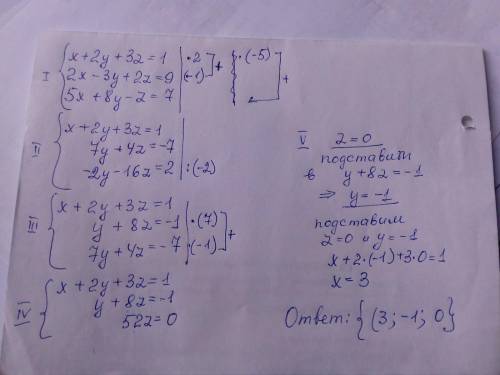 I
x+2y+3z=1 | ·2
2x-3y+2z=9 | (-1) +
5x+8y-z=7
·(-5) +
II
x+2y+3z=1
7y+4z=-7
-2y-16z=2 | :(-2)
III
x+2y+3z=1
y+8z=-1 | ·(7)
7y+4z=-7 | ·(-1) +
IV
x+2y+3z=1
y+8z=-1
52z=0
V z=0
подставим
в y+8z=-1
⇒ y=-1
подставим
z=0 и y=-1
x+2·(-1)+3·0=1
x=3
Ответ: {(3; -1; 0)}